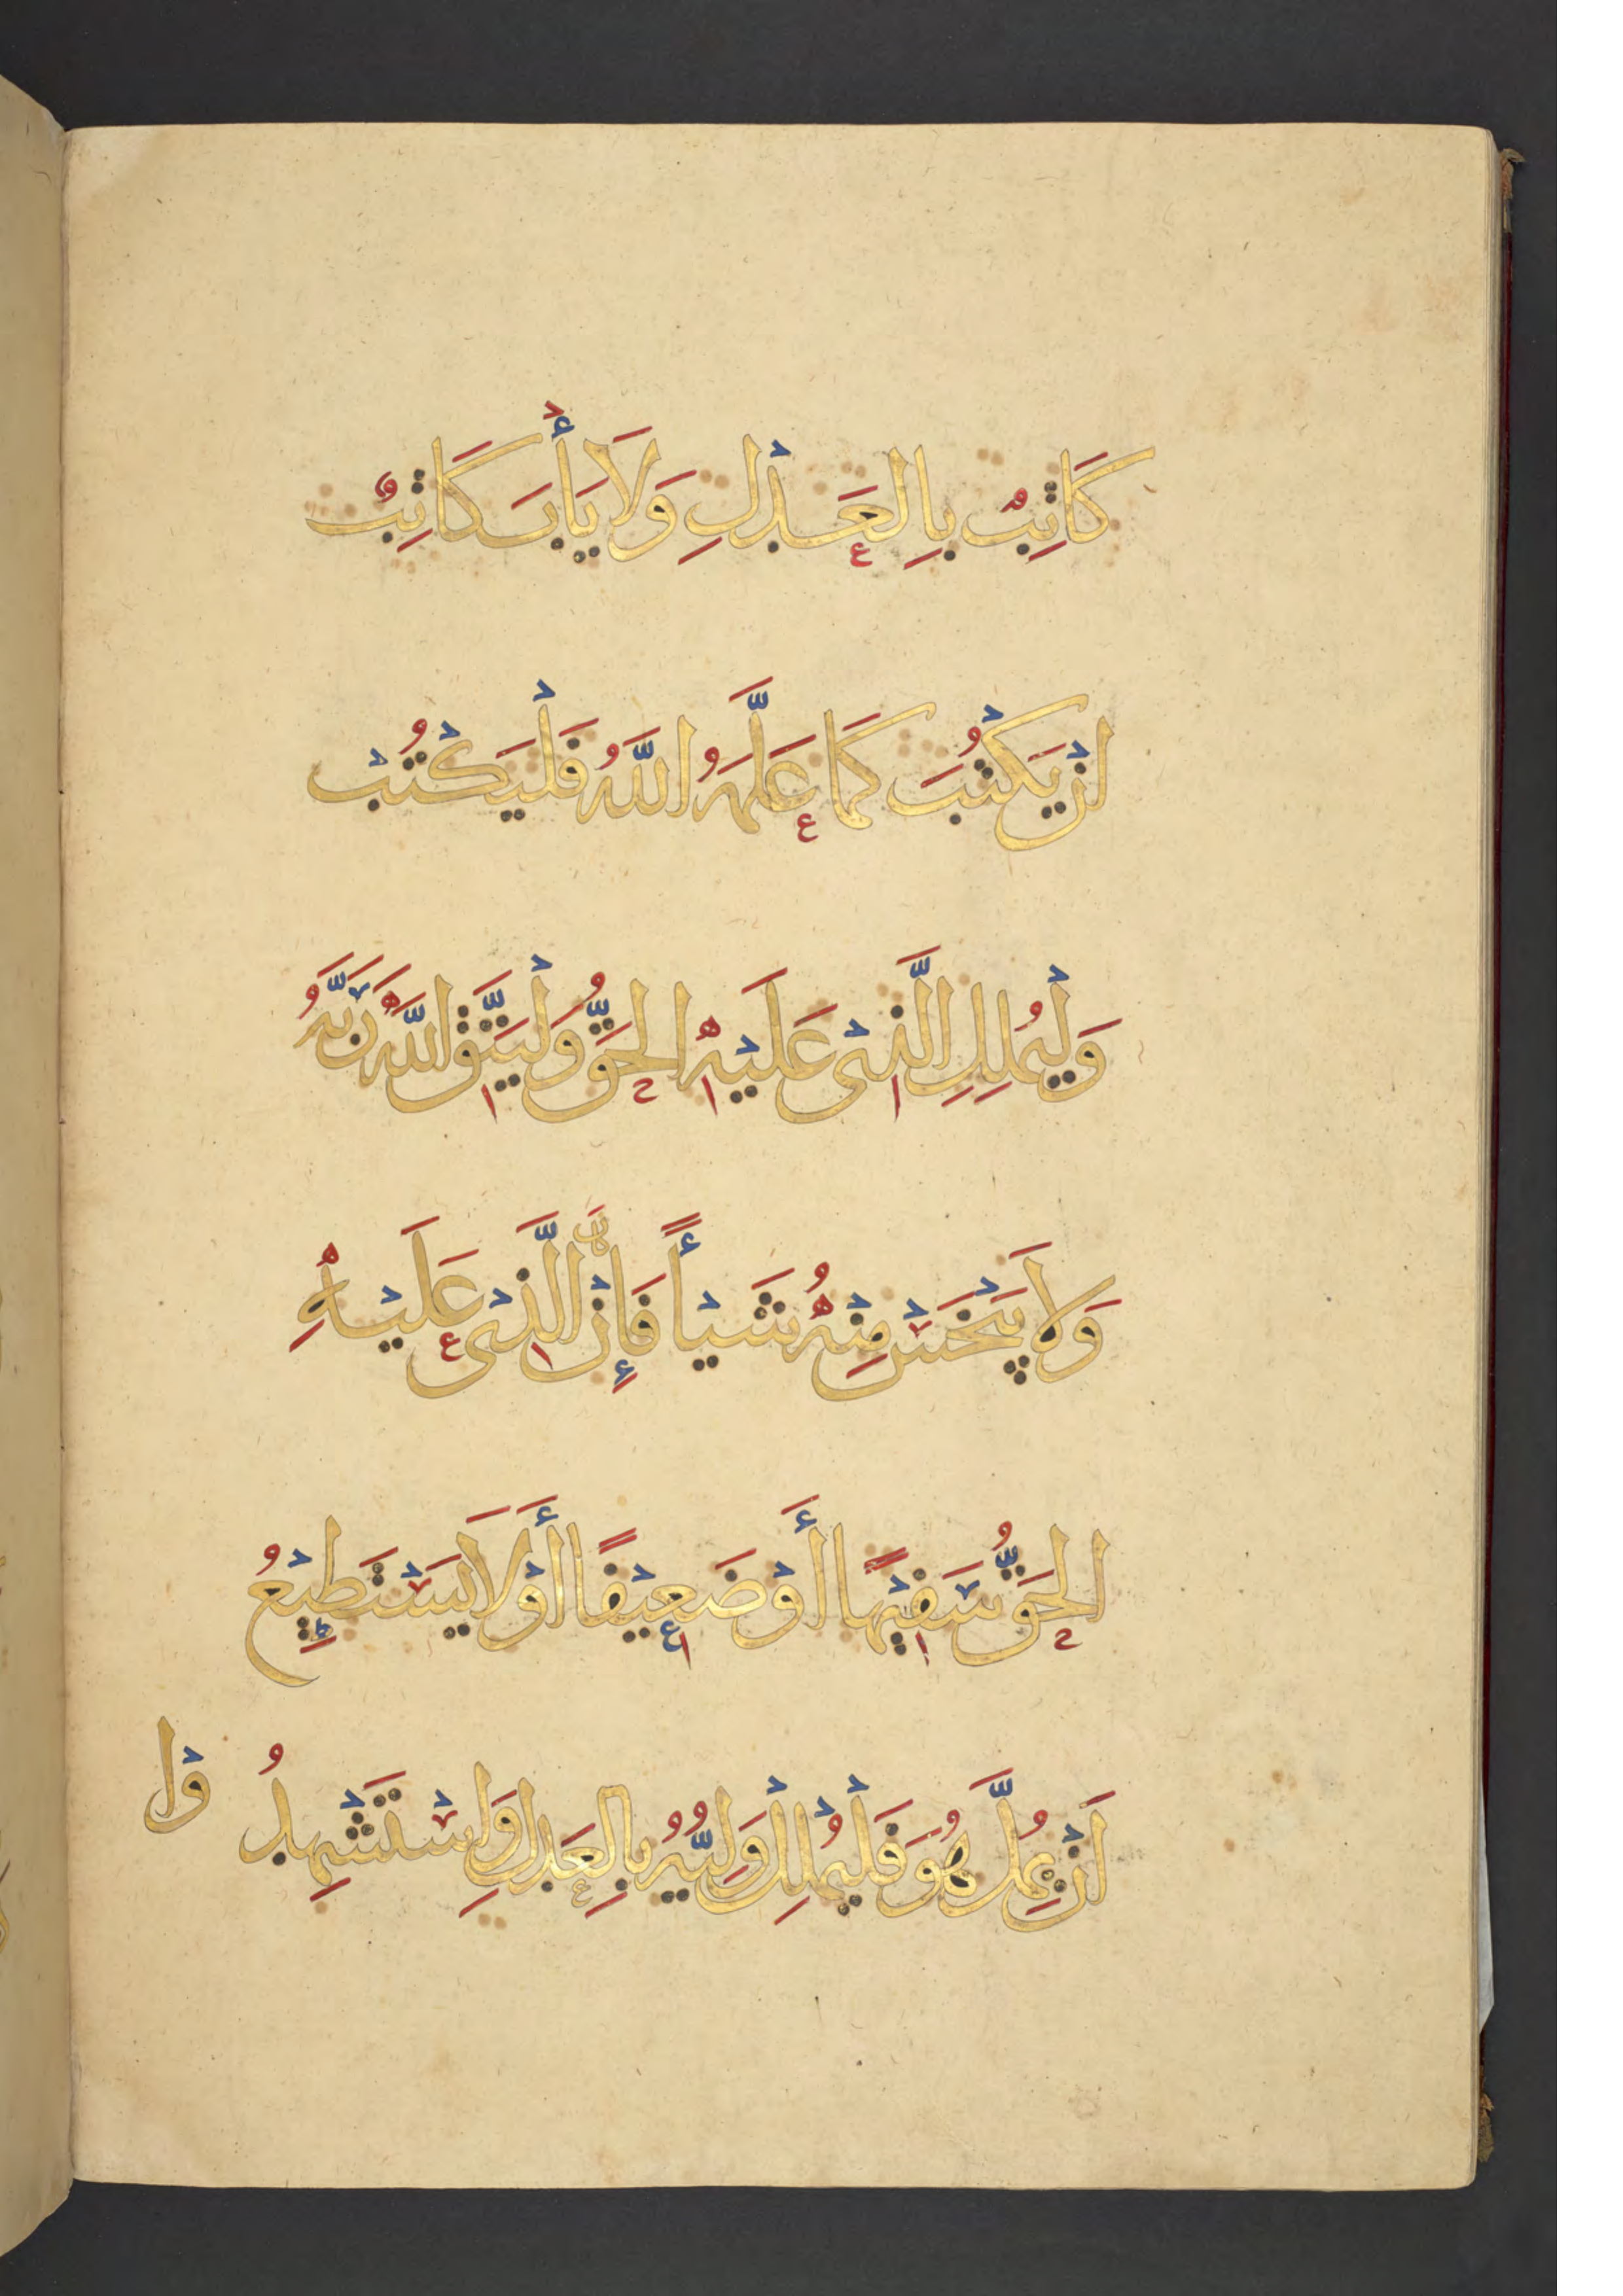 كَاتِبٌ بِالْعَدْلِ وَلَا يَأْبَ كَاتِبٌ
اَنْ يَكْتُبَ كَمَا عَلَّمَهُ اللَّهُ فَلْيَكْتُبْ
وَلْيُمْلِلِ الَّذِى عَلَيْهِ الْحَقُّ وَلْيَتَّقِ اللَّهَ رَبَّهُ
وَلَا يَبْخَسْ مِنْهُ شَيْأً فَإِنْ كَانَ الَّذِى عَلَيْهِ
الْحَقُّ سَفِيْهًا أَوْ ضَعِيْفًا أَوْ لَا يَسْتَطِيْعُ
اَنْ يُمِلَّ هُوَ فَلْيُمْلِلْ وَلِيُّهُ بِالْعَدْلِ وَاسْتَشْهِدُ
وْا